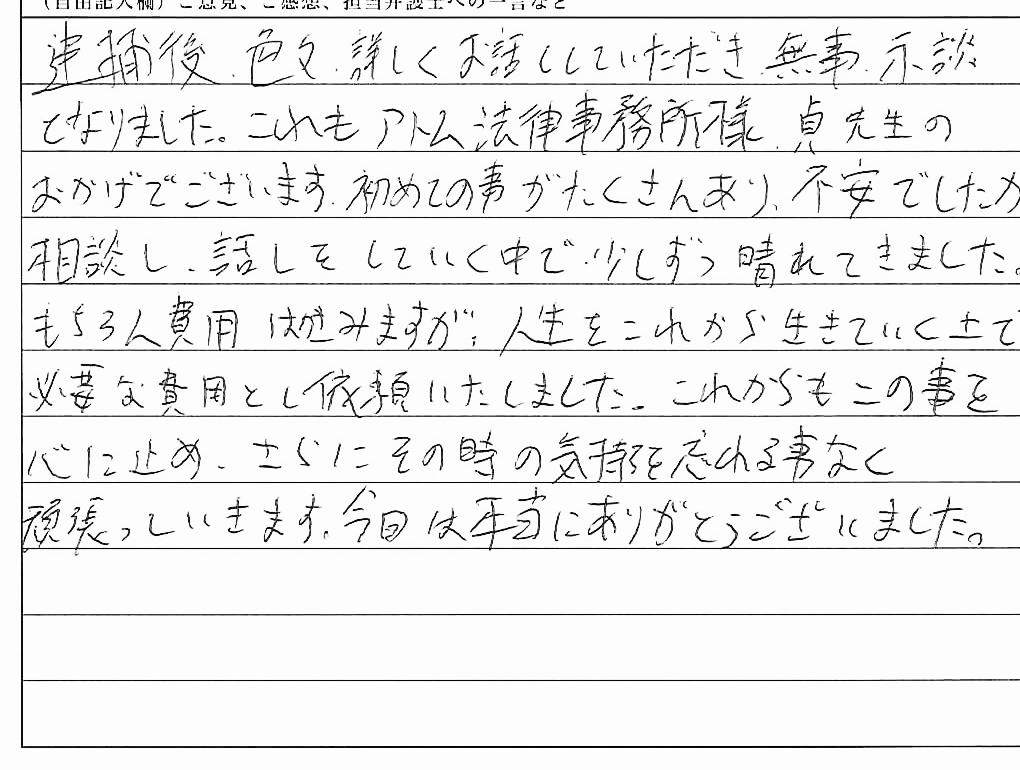 (自由記入欄) ご意見、ご感想、担当弁護士への一言など
逮捕後、色々、詳しくお話ししていただき、無事、示談
となりました。これもアトム法律事務所様、貞先生の
おかげでございます。初めての事がたくさんあり、不安でしたが
相談し、話しをしていく中で、少しずつ晴れてきました。
もちろん費用は嵩みますが、人生をこれから生きていく上で
必要な費用とし依頼いたしました。これからもこの事を
心に止め、さらにその時の気持ちを忘れる事なく
頑張っていきます。今回は本当にありがとうございました。